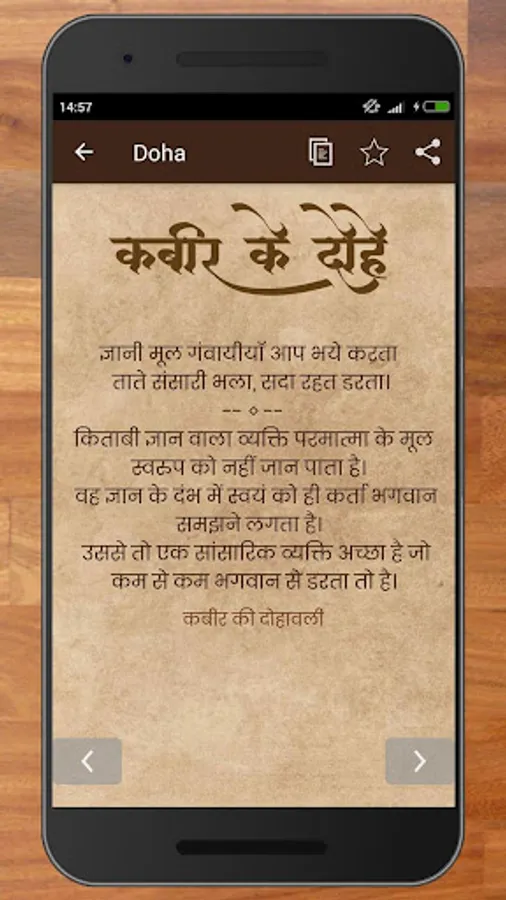 14:57
Doha
कबीर के दोहे
ज्ञानी मूल गंवायीयाॅ आप भये करता
ताते संसारी भला, सदा रहत डरता।
-- ⋄ --
किताबी ज्ञान वाला व्यक्ति परमात्मा के मूल
स्वरुप को नहीं जान पाता है।
वह ज्ञान के दंभ में स्वयं को ही कर्ता भगवान
समझने लगता है।
उससे तो एक सांसारिक व्यक्ति अच्छा है जो
कम से कम भगवान सें डरता तो है।
कबीर की दोहावली